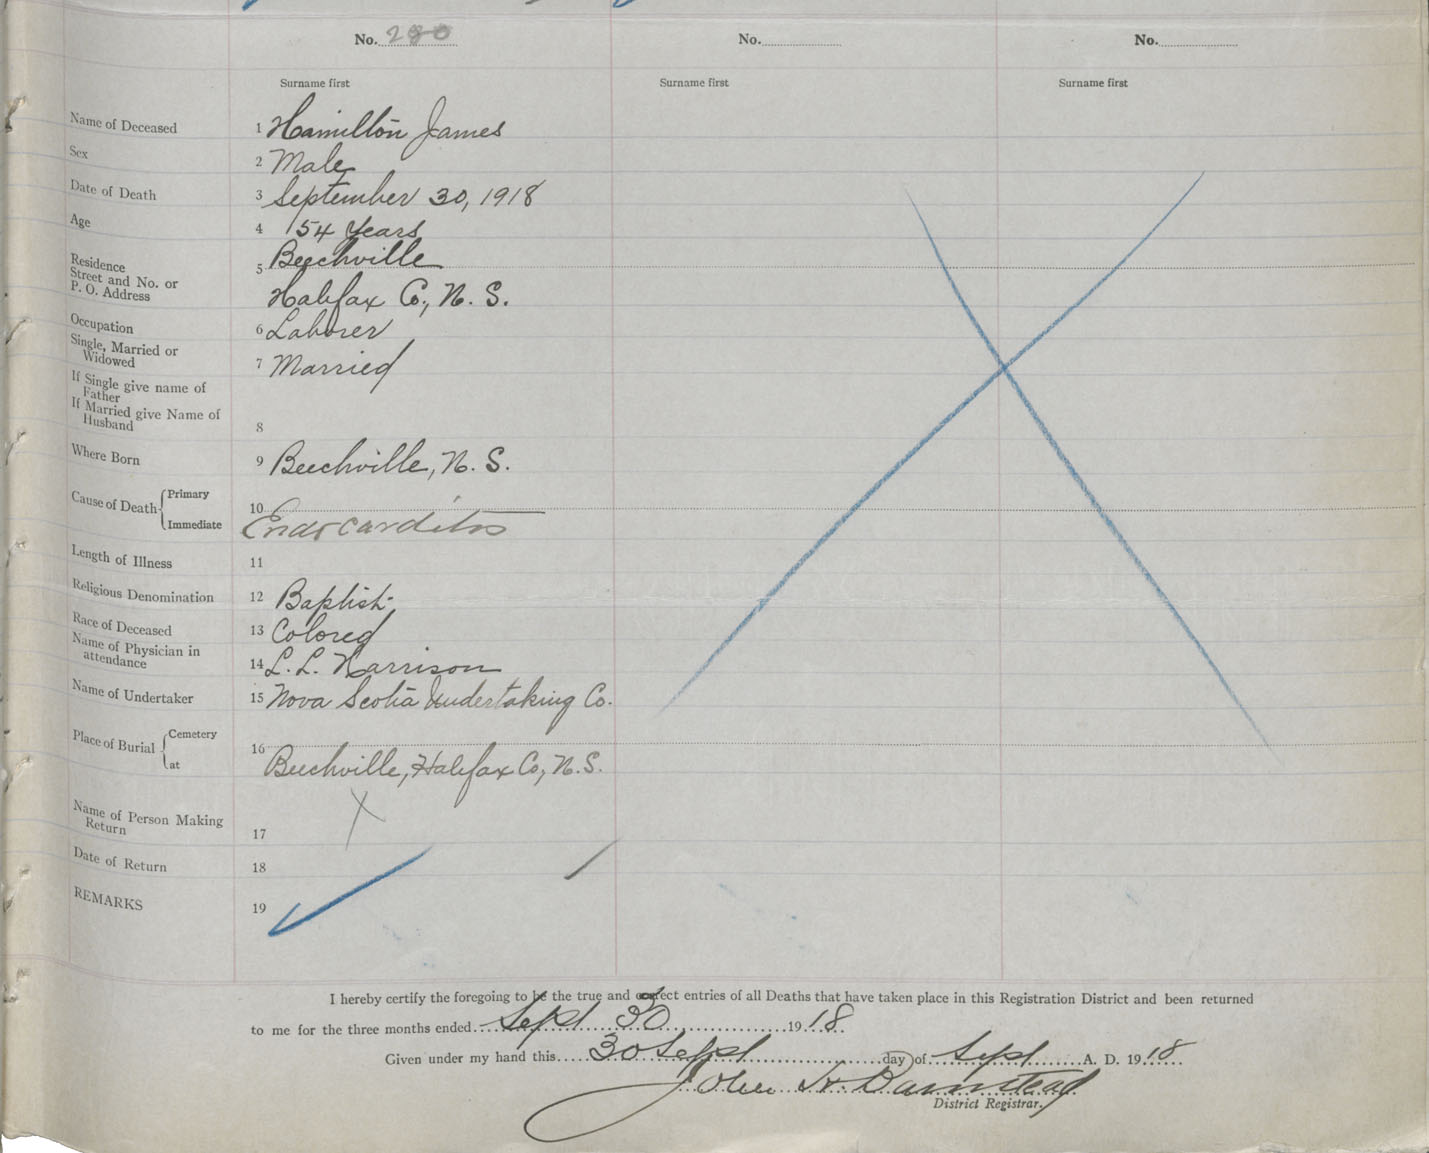 No. 280 No. No.
Surname first Surname first Surname first
Name of Deceased 1 Hamilton James
Sex 2 Male
Date of Death 3 September 30, 1918
Age 4 54 Years
Residence
Street and No. or
P. O. Address
5 Beechville
Halifax Co., N. S.
Occupation 6 Laborer
Single, Married or
Widowed
7 Married
If Single give name of
Father
If Married give Name of
Husband
8
Where Born 9 Beechville, N. S.
Cause of Death Primary 10
Immediate Endocarditis
Length of Illness 11
Religious Denomination 12 Baptist
Race of Deceased 13 Colored
Name of Physician in
attendance
14 L. L. Harrison
Name of Undertaker 15 Nova Scotia Undertaking Co.
Place of Burial Cemetery 16
at Beechville, Halifax Co, N. S.
Name of Person Making
Return
17
Date of Return 18
REMARKS 19
I hereby certify the foregoing to be the true and correct entries of all Deaths that have taken place in this Registration District and been returned
to me for the three months ended Sept 30 1918.
Given under my hand this 30 Sept day of Sept A. D. 1918
John H. Barnstead
District Registrar.